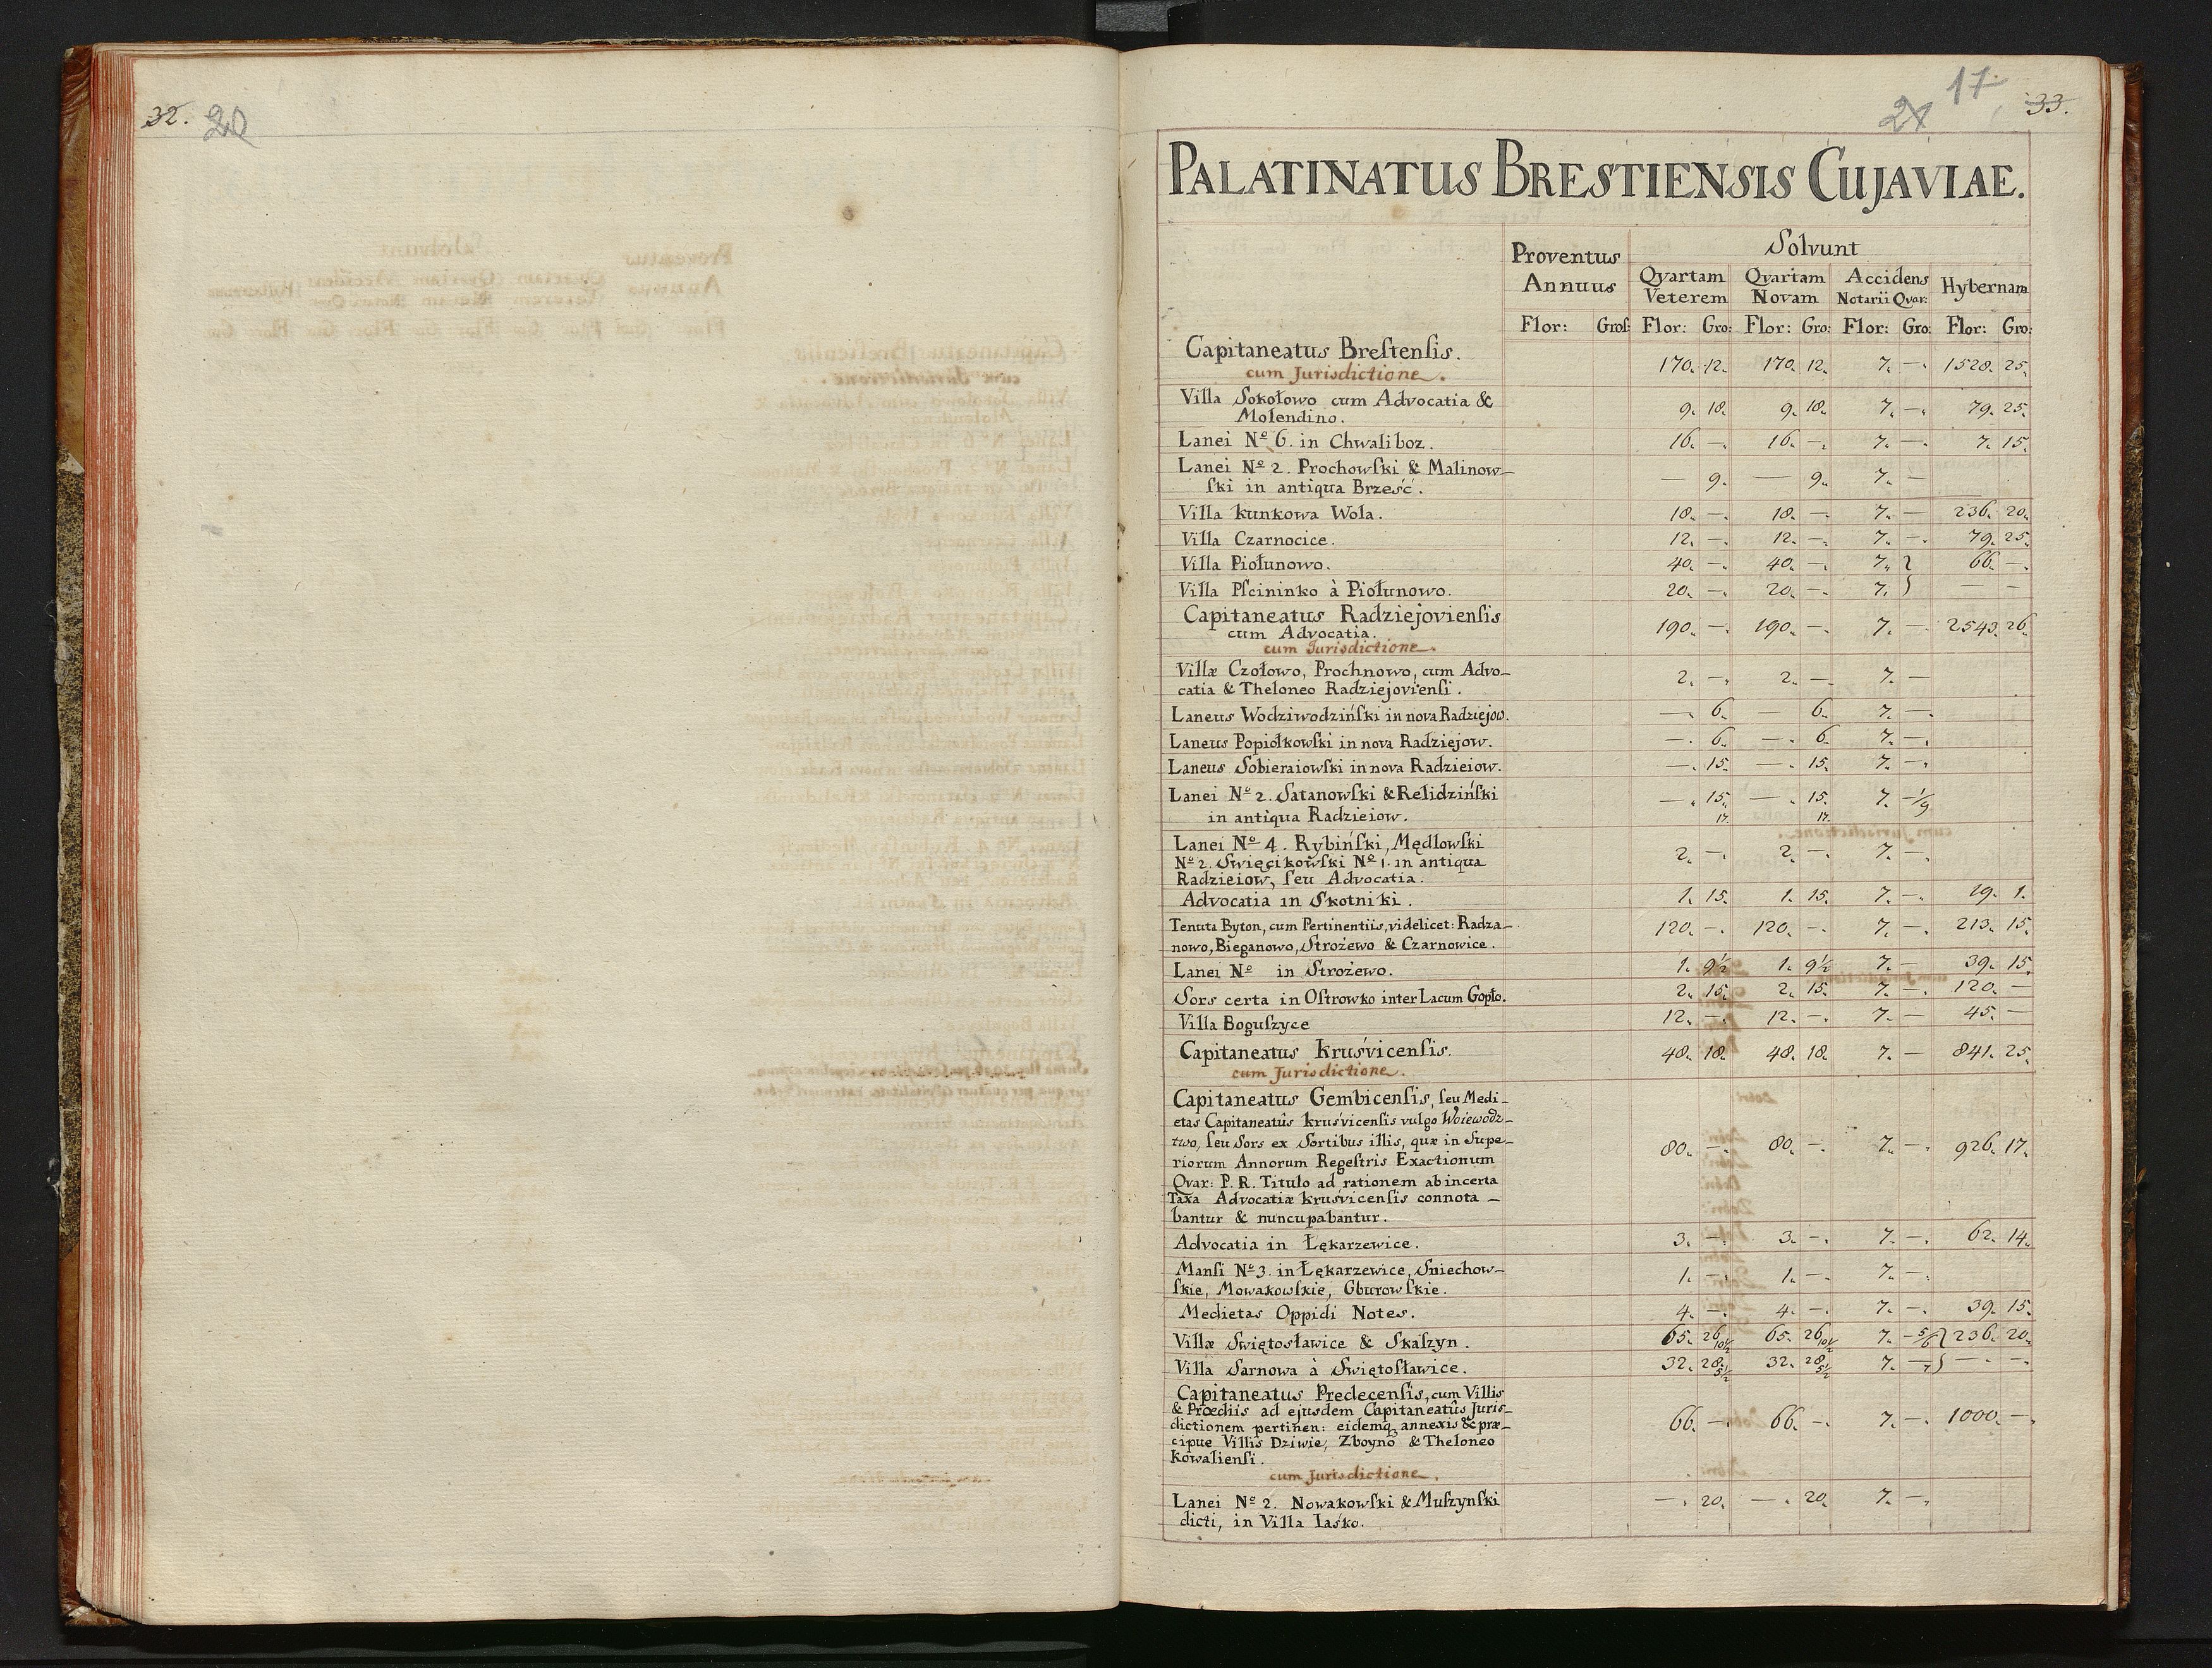 32. 20
17
21 33.
PALATINATUS BRESTIENSIS CUJAVIAE.
Proventus Annuus Solvunt
Qvartam Veterem Qvartam Novam Accidens Notarii Qvar: Hybernam
Flor: Groſ: Flor: Gro: Flor: Gro: Flor: Gro: Flor: Gro:
Capitaneatus Breſtenſis.
cum Jurisdictione. 170. 12. 170. 12. 7. —. 1528. 25.
Villa Sokołowo cum Advocatia &
Molendino. 9. 18. 9. 18. 7. —. 79. 25.
Lanei Nº 6. in Chwaliboz. 16. —. 16. —. 7. —. 7. 15.
Lanei Nº 2. Prochowſki & Malinow-
ſki in antiqua Brześć. — 9. — 9. 7. —
Villa Kunkowa Wola. 18. —. 18. —. 7. — 236. 20.
Villa Czarnocice. 12. —. 12. —. 7. —. 79. 25.
Villa Piołunowo. 40. —. 40. —. 7. } 66. —.
Villa Plcininko à Piołunowo. 20. —. 20. —. 7. } — —
Capitaneatus Radziejovienſis
cum Advocatia. 190. —. 190. —. 7. —. 2543. 26.
cum Jurisdictione.
Villæ Czołowo, Prochnowo, cum Advo-
catia & Theloneo Radziejovienſi. 2. —. 2. —. 7. —
Laneus Wodziwodzińſki in nova Radziejow. —. 6. — 6. 7. —.
Laneus Popiołkowſki in nova Radziejow. —. 6. —. 6. 7. —.
Laneus Sobieraiowſki in nova Radzieiow. —. 15. —. 15. 7. —.
Lanei Nº 2. Satanowſki & Relidzińſki —. 15. —. 15. 7. -1/9
in antiqua Radzieiow. 17. 17.
Lanei Nº 4. Rybińſki, Mędlowſki
Nº 2. Swięcikowſki Nº 1. in antiqua 2. —. 2. —. 7. —.
Radzieiow, ſeu Advocatia.
Advocatia in Skotniki. 1. 15. 1. 15. 7. —. 19. 1.
Tenuta Byton, cum Pertinentiis, videlicet: Radza-
nowo, Bieganowo, Strożewo & Czarnowice. 120. —. 120. —. 7. —. 213. 15.
Lanei Nº in Strożewo. 1. 9½ 1. 9½ 7. — 39. 15.
Sors certa in Oſtrowko inter Lacum Gopło. 2. 15. 2. 15. 7. —. 120. —
Villa Boguſzyce 12. —. 12. —. 7. — 45. —
Capitaneatus Kruśvicenſis. 48. 18. 48. 18. 7. — 841. 25.
cum Jurisdictione.
Capitaneatus Gembicenſis, ſeu Medi-
etas Capitaneatûs Kruśvicenſis vulgo Woiewodz-
two, ſeu Sors ex Sortibus illis, quæ in Supe-
riorum Annorum Regeſtris Exactionum 80. —. 80. —. 7. —. 926. 17.
Qvar: P. R. Titulo ad rationem ab incerta
Taxa Advocatiæ Kruśvicenſis connota-
bantur & nuncupabantur.
Advocatia in Łękarzewice. 3. —. 3. —. 7. —. 62. 14.
Manſi Nº 3. in Łękarzewice, Sniechow-
ſkie, Mowakowſkie, Gburowſkie. 1. —. 1. —. 7. —.
Medietas Oppidi Notes. 4. —. 4. —. 7. —. 39. 15.
Villæ Swiętosławice & Skaſzyn. 65. 26 10½ 65. 26 10½ 7. -5/6 } 236. 20.
Villa Sarnowa à Swiętoſławice. 32. 28 5½ 32. 28 5½ 7. — } —. —.
Capitaneatus Predecenſis, cum Villis
& Prœdiis ad ejusdem Capitaneatûs Juris-
dictionem pertinen: eidemq annexis & præ- 66. — 66. —. 7. —. 1000. —.
cipue Villis Dziwie, Zboyno & Theloneo
Kowalienſi.
cum Jurisdictione.
Lanei Nº 2. Nowakowſki & Muſzynſki —. 20. —. 20. 7. —.
dicti, in Villa Iaśko.